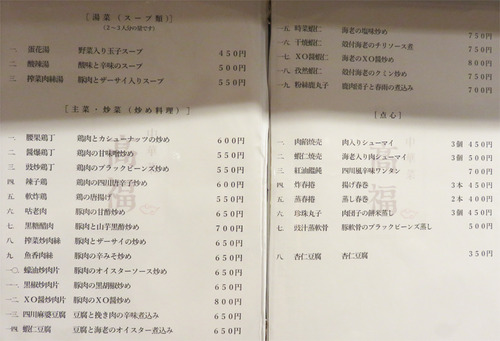 [湯菜(スープ類)]
(2~3人分の量です)
一 蛋花湯 野菜入り玉子スープ 450円
二 酸辣湯 酸味と辛味のスープ 500円
三 搾菜肉絲湯 豚肉とザーサイ入りスープ 550円
[主菜・炒菜(炒め料理)]
一 腰果鶏丁 鶏肉とカシューナッツの炒め 600円
二 醤爆鶏丁 鶏肉の甘味噌炒め 550円
三 豉炒鶏丁 鶏肉のブラックビーンズ炒め 550円
四 辣子鶏 鶏肉の四川唐辛子炒め 600円
五 軟炸鶏 鶏の唐揚げ 550円
六 咕老肉 豚肉の甘酢炒め 650円
七 黒糖醋肉 豚肉と山芋黒酢炒め 700円
八 搾菜炒肉絲 豚肉とザーサイの炒め 650円
九 魚香肉絲 豚肉の辛みそ炒め 650円
一〇 蠔油炒肉片 豚肉のオイスターソース炒め 650円
一一 黒椒炒肉片 豚肉の黒胡椒炒め 650円
一二 XO醤炒肉片 豚肉のXO醤炒め 800円
一三 四川麻婆豆腐 豆腐と挽き肉の辛味煮込み 650円
一四 蝦仁豆腐 豆腐と海老のオイスター煮込み 650円
一五 時菜蝦仁 海老の塩味炒め 750円
一六 干焼蝦仁 殻付海老のチリソース煮 750円
一七 XO醤蝦仁 海老のXO醤炒め 800円
一八 孜然蝦仁 殻付海老のクミン炒め 750円
一九 粉絲鹿丸子 鹿肉団子と春雨の煮込み 700円
[点心]
一 肉餡焼売 肉入りシューマイ 3個 450円
二 蝦仁焼売 海老入り肉シューマイ 3個 500円
三 紅油鑞飩 四川風辛味ワンタン 700円
四 炸春捲 揚げ春巻 2本 450円
五 蒸春捲 蒸し春巻 2本 400円
六 珍珠丸子 肉団子の餅米蒸し 3個 450円
七 豉汁蒸軟骨 豚軟骨のブラックビーンズ蒸し 500円
八 杏仁豆腐 杏仁豆腐 350円
中華菜
高福
中華菜
高福